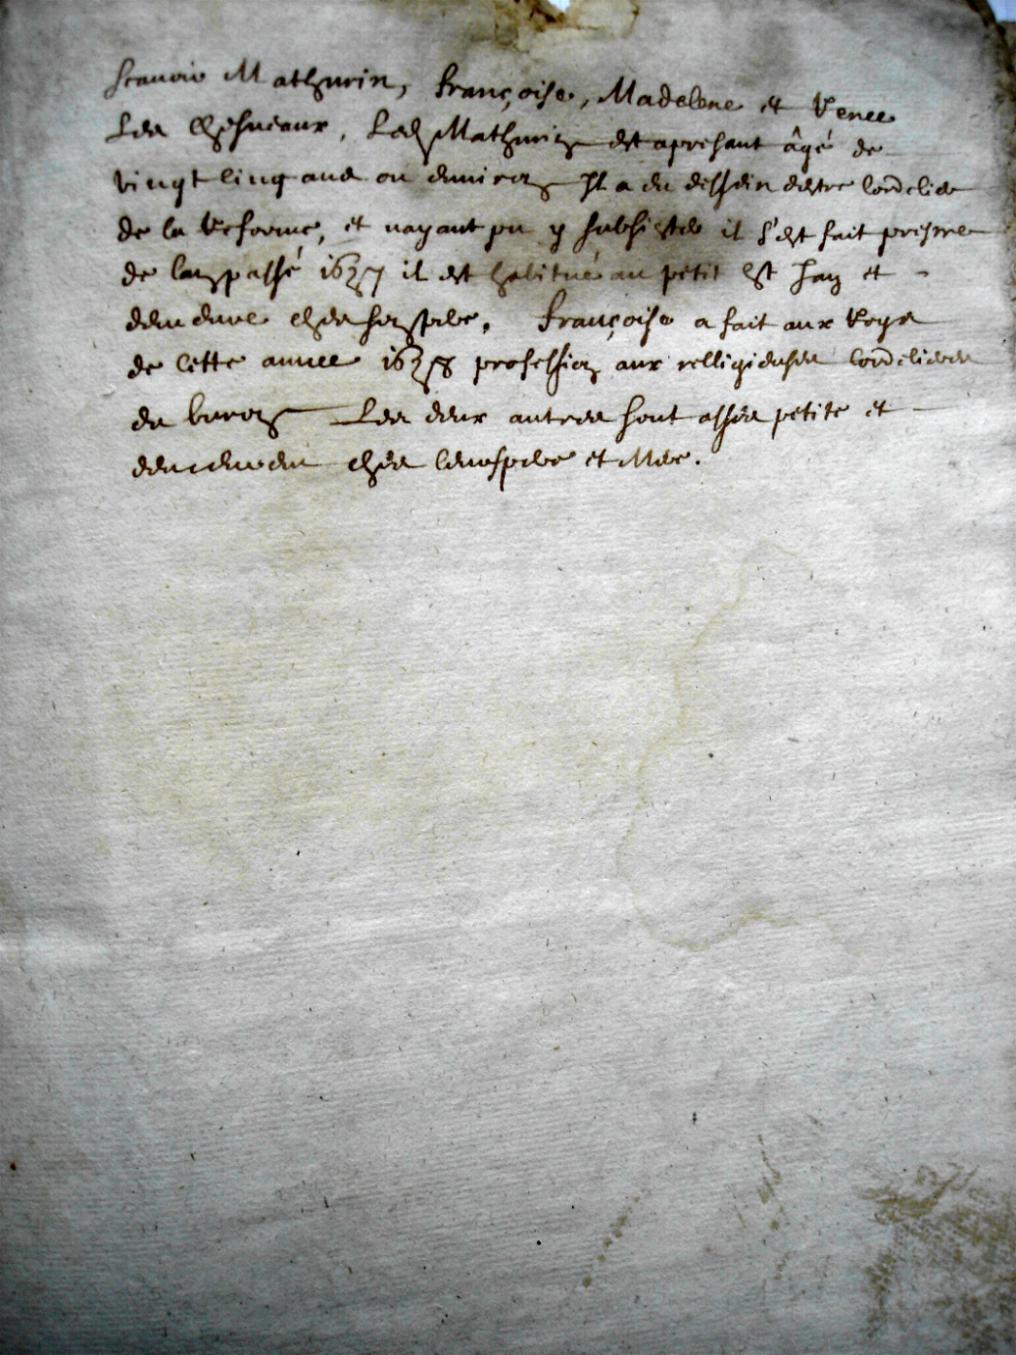 scavoir Mathurin, Françoise, Madelene et Renee
Les Chesneaux, Led Mathurin est apresant âgé de
vingt cinq ans ou environ Il a eu dessein destre Cordelier
de la Reforme, et nayant pu y subsister il s'est fait
de lan passé 1657 il est habitué au petit St Jan et
demeure ches son pere, Françoise a fait aux Roys
de cette annee 1658 profession aux relligieuses Cordelieres
de Les deux autres sont assés petite et
demeurent ches leurs pere et Mere.